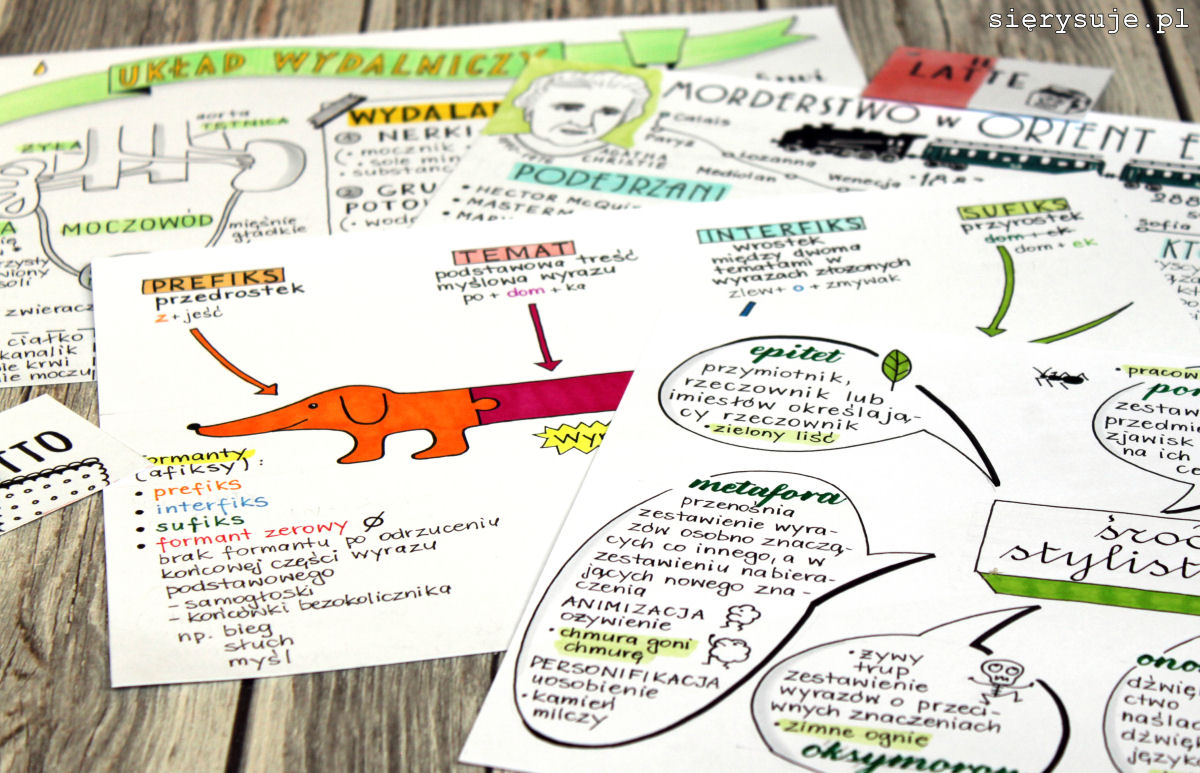 sięrysuje.pl
UKŁAD WYDALNICZY
aorta
TĘTNICA
ŻYŁA
MOCZOWÓD
mięśnie
gładkie
zwieracz
ciałko
kanalik
krwi
moczu
WYDALA
① NERKI
mocznik
sole min
substanc
② GRU
POTO
wod
LATTE
MORDERSTWO w ORIENT E
Calais
Paryż
Lozanna
Mediolan
Wenecja
Sofia
AGATHA
CHRISTIE
PODEJRZANI
• HECTOR McQu
• MASTERM
PREFIKS
przedrostek
z + jeść
TEMAT
podstawowa treść
myślowa wyrazu
po + dom + ka
INTERFIKS
wrostek
między dwoma
tematami w
wyrazach złożonych
zlew + o + zmywak
SUFIKS
przyrostek
dom + ek
dom + ek
TTO
ormanty
(afiksy):
• prefiks
• interfiks
• sufiks
• formant zerowy Ø
brak formantu po odrzuceniu
końcowej części wyrazu
podstawowego
- samogłoski
- końcówki bezokolicznika
np. bieg
słuch
myśl
epitet
przymiotnik,
rzeczownik lub
imiesłów określają-
cy rzeczownik
• zielony liść
metafora
przenośnia
zestawienie wyra-
zów osobno znaczą-
cych co innego, a w
zestawieniu nabiera-
jących nowego zna-
czenia
ANIMIZACJA
ożywienie
• chmura goni
chmurę
PERSONIFIKACJA
uosobienie
• kamień
milczy
• pracow
po
zestaw
przedmi
zjawisk
na ich
ce
śro
stylist
• żywy
trup
zestawienie
wyrazów o przeci-
wnych znaczeniach
• zimne ognie
oksymoron
ono
dźwię
ctwo
naśla
dźwię
język